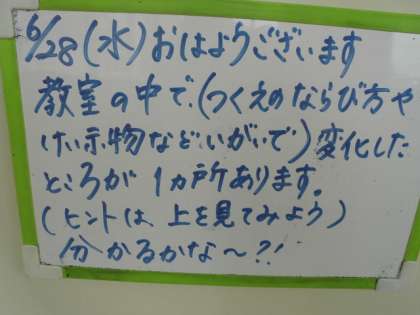 6/28(水)おはようございます
教室の中で、(つくえのならび方や
けい示物などいがいで)変化した
ところが1ヵ所あります。
(ヒントは、上を見てみよう)
分かるかな〜?!